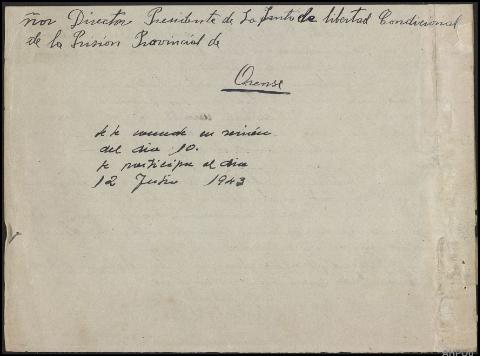 ñor Director Presidente de La Junta de libertad Condicional
de la Prision Provincial de
Orense
se le concede en reunión
del dia 10.
se participa el dia
12 Julio 1943